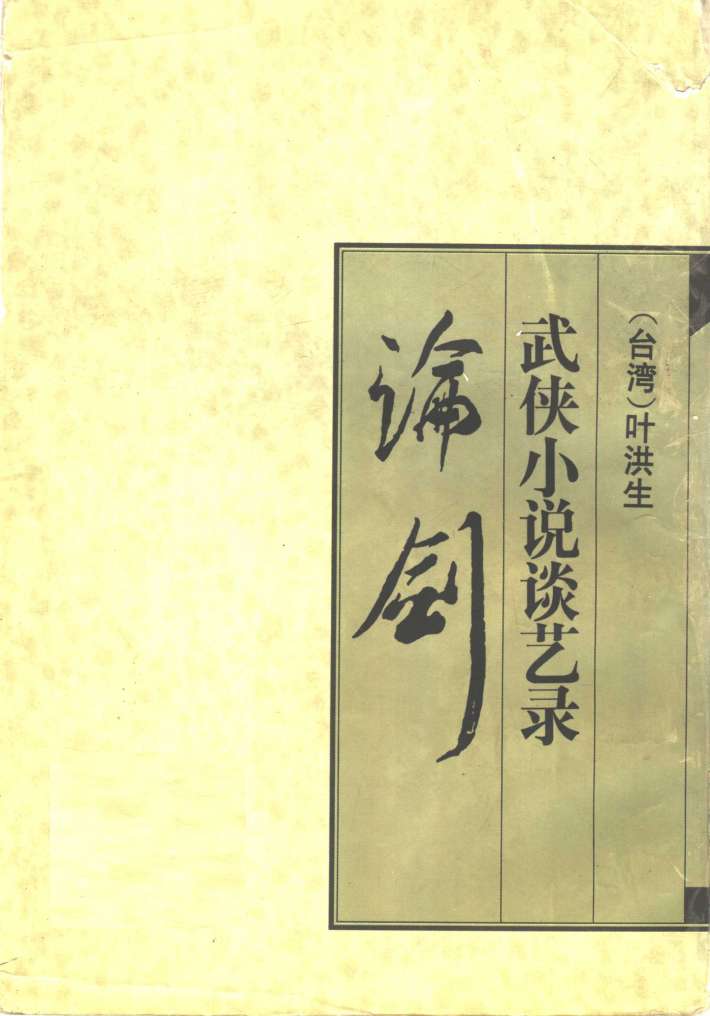 （台湾）叶洪生
武侠小说谈艺录
论剑